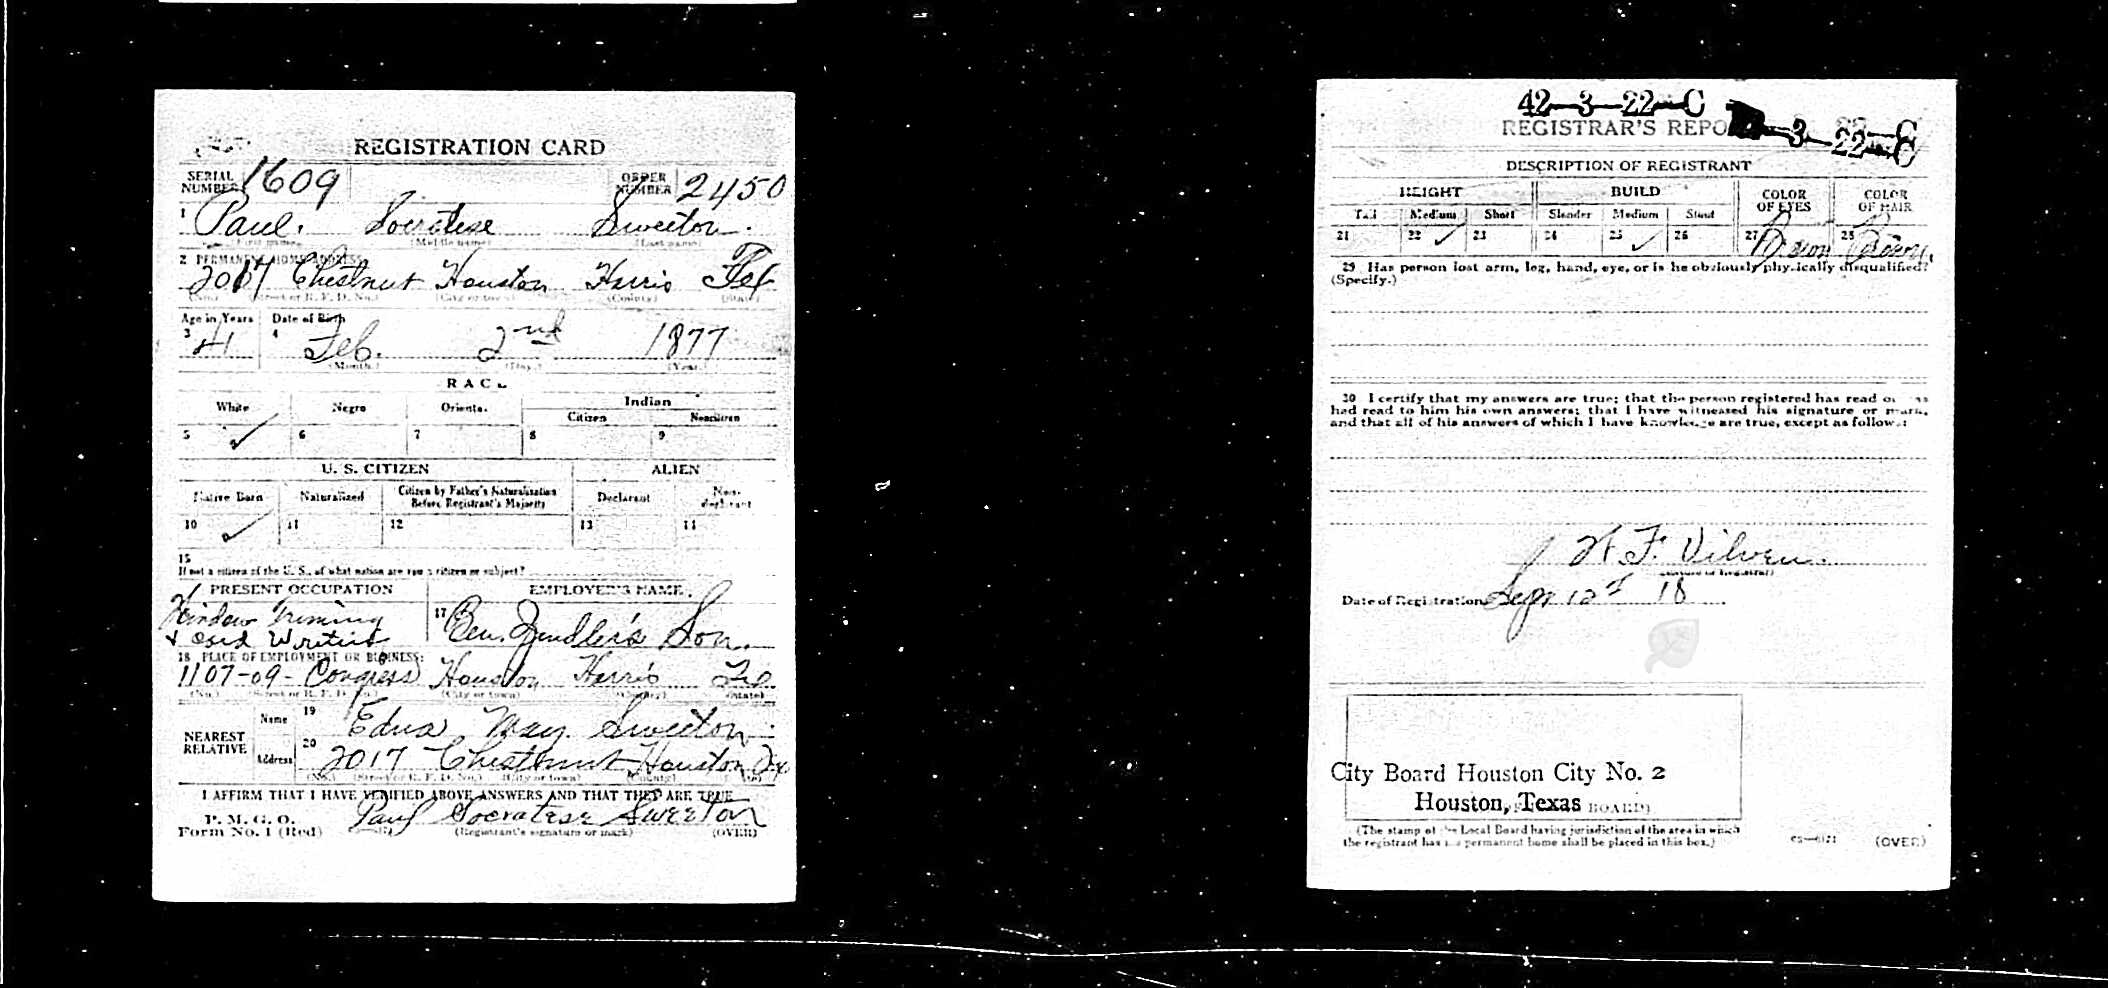 REGISTRATION CARD
SERIAL NUMBER 1609 ORDER NUMBER 2450
1 Paul. Socratese Sweeton.
(First name) (Middle name) (Last name)
2 PERMANENT HOME ADDRESS:
2017 Chestnut Houston Harris Tex
(No.) (Street or R. F. D. No.) (City or town) (County) (State)
Age in Years Date of Birth
3 41 4 Feb. 2nd 1877
(Month.) (Day.) (Year.)
RACE
White Negro Oriental Indian
Citizen Noncitizen
5 ✓ 6 7 8 9
U. S. CITIZEN ALIEN
Native Born Naturalized Citizen by Father's Naturalization Before Registrant's Majority Declarant Non-declarant
10 ✓ 11 12 13 14
15
If not a citizen of the U. S., of what nation are you a citizen or subject?
PRESENT OCCUPATION EMPLOYER'S NAME
Window Triming & Card Writing 17 Ben. Son.
18 PLACE OF EMPLOYMENT OR BUSINESS:
1107-09- Congress Houston Harris Tex
(No.) (Street or R. F. D. No.) (City or town) (County) (State)
NEAREST RELATIVE
Name 19 Edna May. Sweeton.
Address 20 2017 Chestnut Houston Tex
(No.) (Street or R. F. D. No.) (City or town) (County)
I AFFIRM THAT I HAVE VERIFIED ABOVE ANSWERS AND THAT THEY ARE TRUE
P. M. G. O.
Form No. 1 (Red) Paul Socratese Sweeton
(Registrant's signature or mark) (OVER)
42-3-22-C
REGISTRAR'S REPO -3-22-C
DESCRIPTION OF REGISTRANT
HEIGHT BUILD COLOR OF EYES COLOR OF HAIR
Tall Medium Short Slender Medium Stout
21 22 ✓ 23 24 25 ✓ 26 27 Brown 28 Brown.
29 Has person lost arm, leg, hand, eye, or is he obviously physically disqualified?
(Specify.)
30 I certify that my answers are true; that the person registered has read or has
had read to him his own answers; that I have witnessed his signature or mark,
and that all of his answers of which I have knowledge are true, except as follows:
F. Vilven.
(Signature of Registrar)
Date of Registration Sep 12 18
City Board Houston City No. 2
Houston, Texas
BOARD)
(The stamp of the Local Board having jurisdiction of the area in which
the registrant has his permanent home shall be placed in this box.)
(OVER)